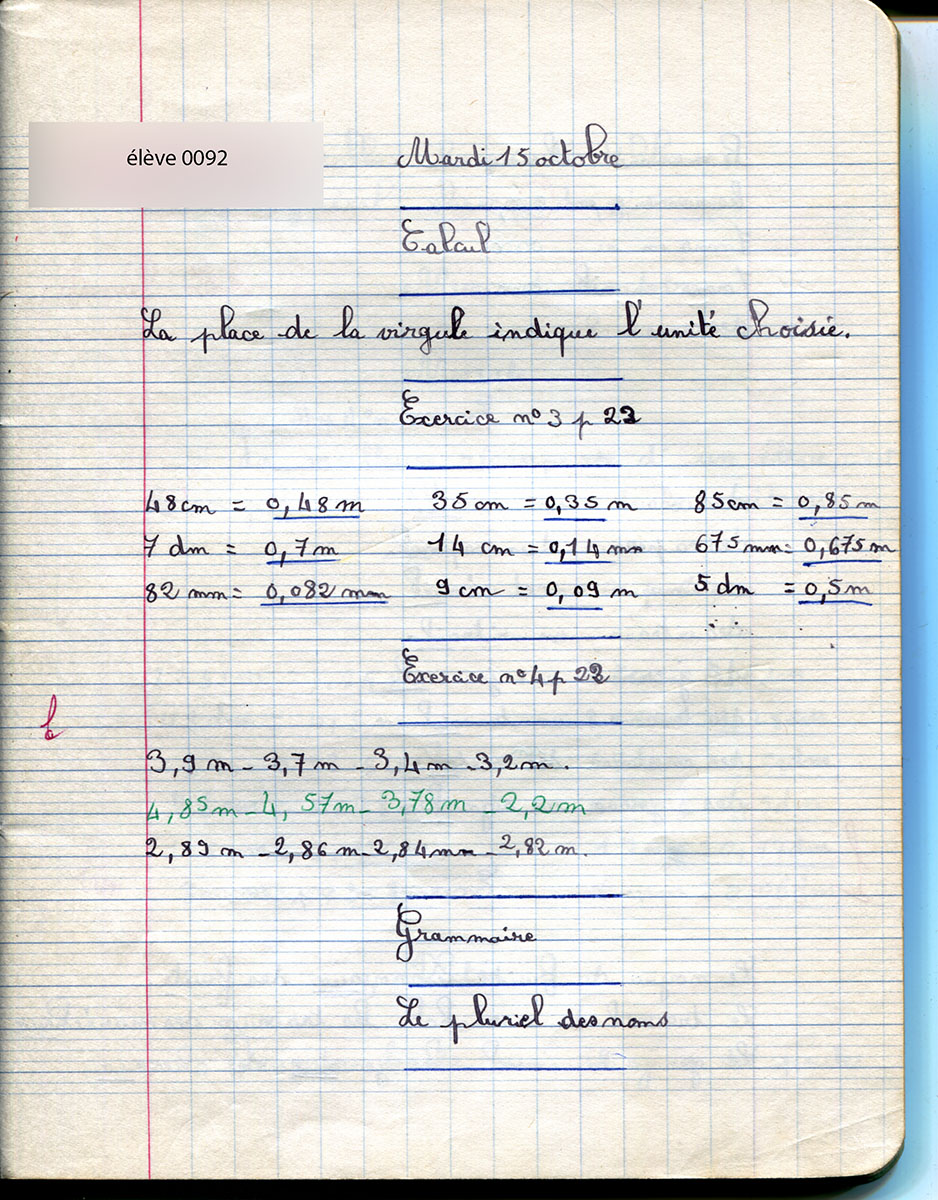 élève 0092
Mardi 15 octobre
Calcul
La place de la virgule indique l'unité choisie.
Exercice n° 3 p 22
48cm = 0,48 m 35 cm = 0,35 m 85cm = 0,85 m
7 dm = 0,7m 14 cm = 0,14 mm 675 mm = 0,675 m
82 mm = 0,082 mm 9 cm = 0,09 m 5 dm = 0,5m
Exercice n° 4 p 22
b
3,9 m - 3,7 m - 3,4 m - 3,2 m.
4,85m - 4,57m - 3,78m - 2,2m
2,89 m - 2,86 m - 2,84 mm - 2,82 m.
Grammaire
Le pluriel des noms